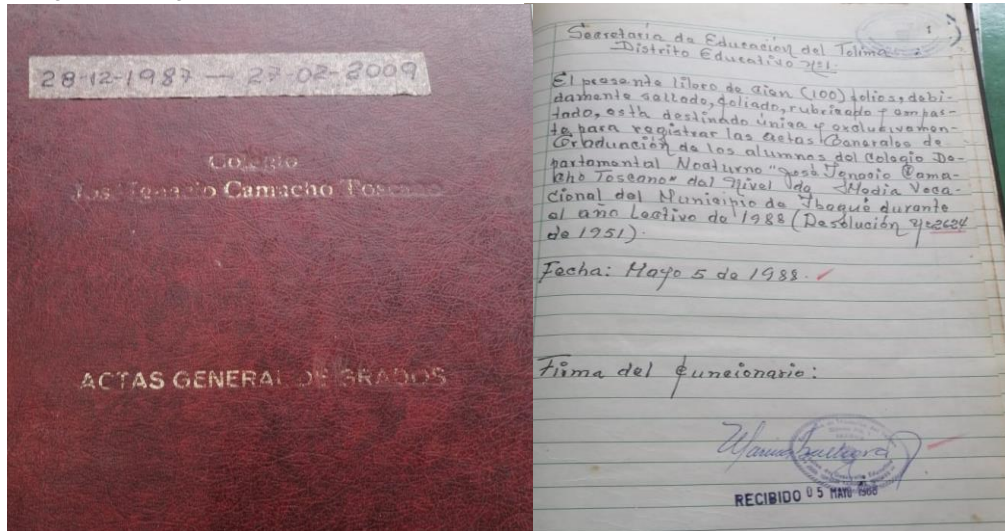 28-12-1987 — 27-02-2009
Colegio
José Ignacio Camacho Toscano
ACTAS GENERAL DE GRADOS
1
Secretaría de Educación del Tolima
Distrito Educativo Nº1.
El presente libro de cien (100) folios, debi-
damente sellado, foliado, rubricado y empas-
tado, está destinado única y exclusivamen-
te para registrar las Actas Generales de
Graduación de los alumnos del Colegio De-
partamental Nocturno "José Ignacio Cama-
cho Toscano" del Nivel de Media Voca-
cional del Municipio de Ibagué durante
el año Lectivo de 1988 (Resolución Nº2624
de 1951).
Fecha: Mayo 5 de 1988.
Firma del funcionario:
RECIBIDO 05 MAYO 1988